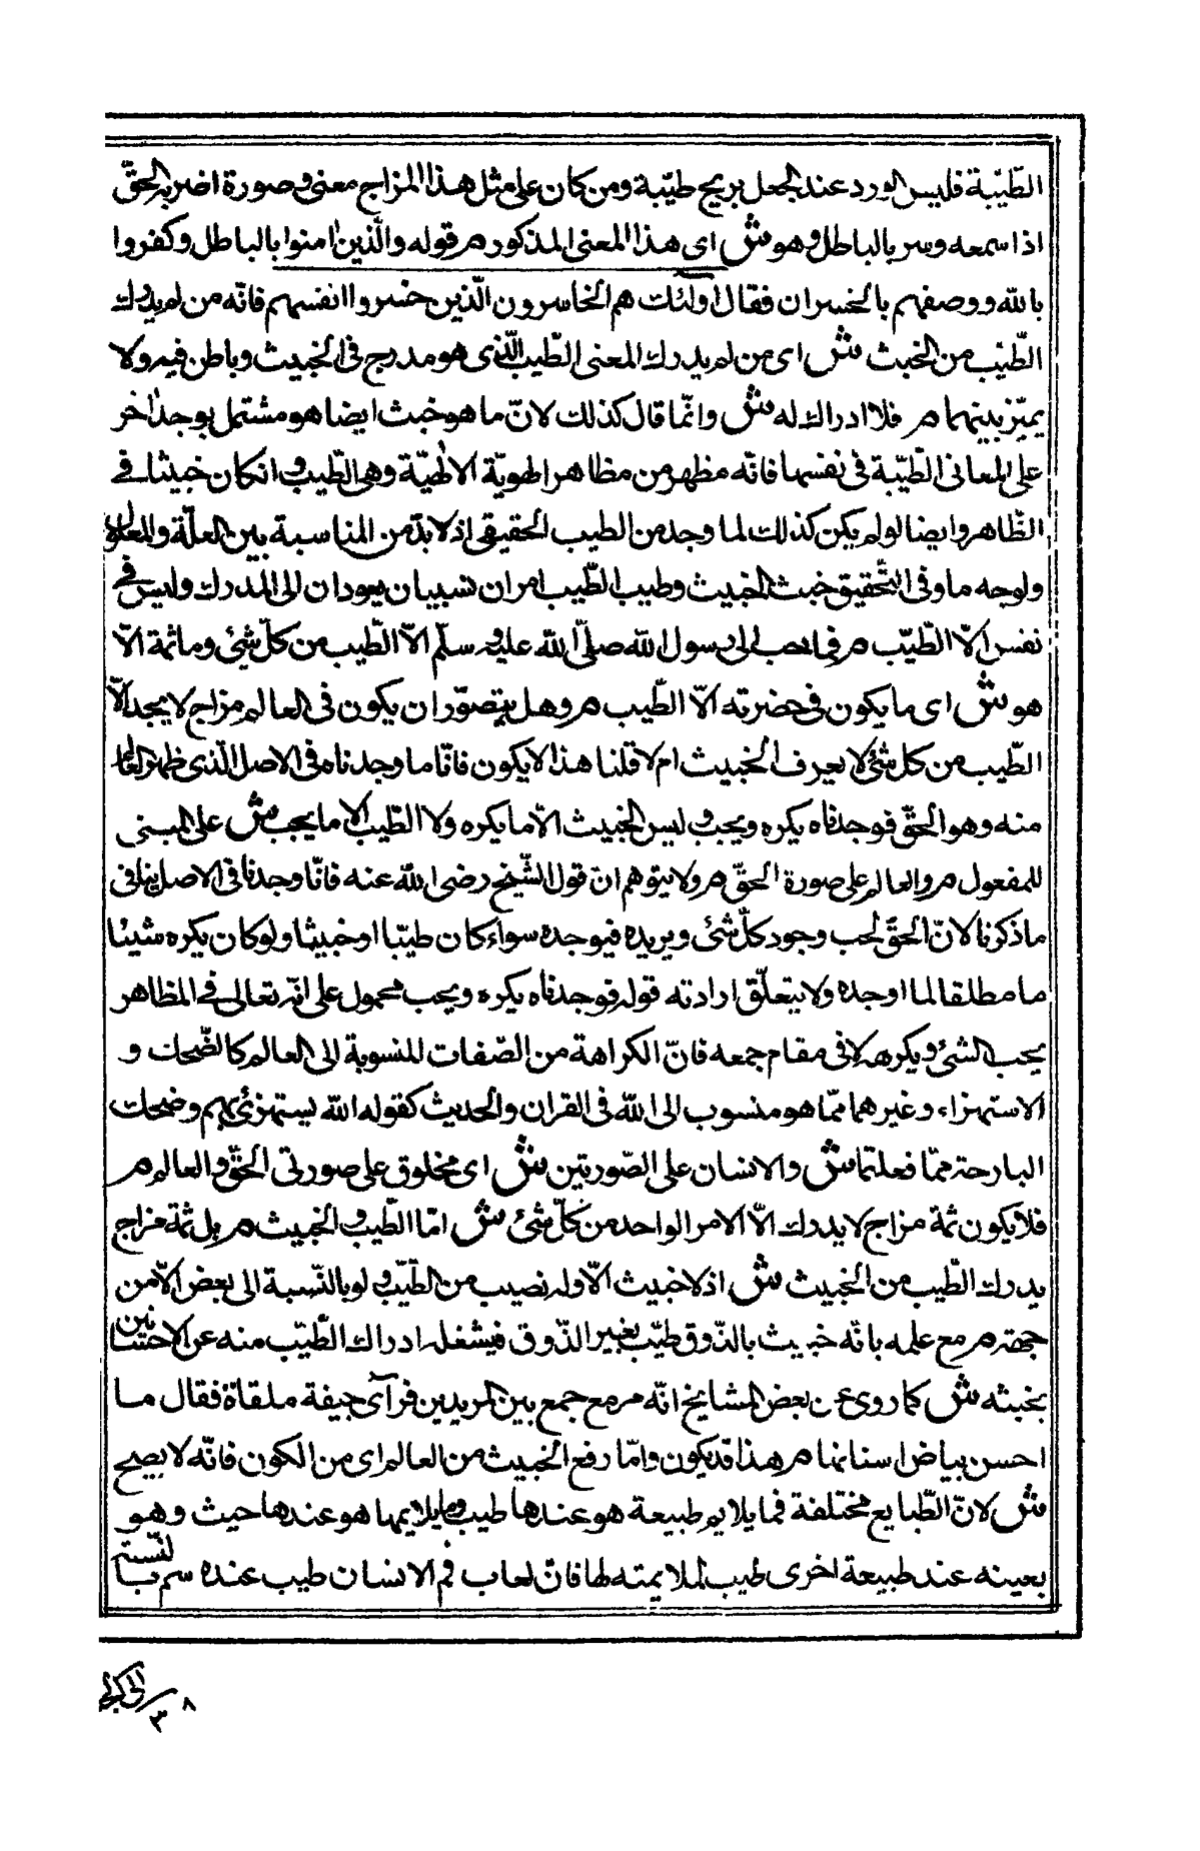 الطّيّبة فليس الورد عند الجعل بريح طيّبة ومن كان على مثل هذا المزاج معنى وصورة اضر به الحقّ
اذا سمعه وسر بالباطل وهو ش اى هذا المعنى المذكور م قوله والّذين اٰمنوا بالباطل وكفروا
بالله ووصفهم بالخسران فقال اولئك هم الخاسرون الّذين خسروا انفسهم فانّه من لم يدرك
الطّيّب من الخبث ش اى من لم يدرك المعنى الطّيب الّذى هو مدرج فى الخبيث وباطن فيه ولا
يميّز بينهما م فلا ادراك له ش وانّما قال كذلك لانّ ما هو خبث ايضا هو مشتمل بوجه اٰخر
على المعانى الطّيّبة فى نفسها فانّه مظهر من مظاهر الهويّة الالٰهيّة وهى الطّيب وانكان خبيثا فى
الظّاهر وايضا لو لم يكن كذلك لما وجد من الطيب الحقيقى اذ لا بدّ من المناسبة بين العلّة والمعلول
ولو جه ما وفى التّحقيق خبث الخبيث وطيب الطّيب امران نسبيان يعودان الى المدرك وليس فى
نفس الّا الطّيّب م فما حب الى رسول الله صلّى الله عليه وسلّم الّا الطّيب من كلّ شئ وما ثمة الّا
هو ش اى ما يكون فى حضرته الّا الطّيب م وهل يتصوّر ان يكون فى العالم مزاج لا يجد الّا
الطّيب من كل شئ لا يعرف الخبيث ام لا قلنا هذا لا يكون فانّا ما وجدناه فى الاصل الّذى ظهر العالم
منه وهو الحقّ فوجدناه يكره ويحب وليس الخبيث الّا ما يكره ولا الطّيب الا ما يحب ش على المبنى
للمفعول م والعالم على صورة الحقّ م ولا يتوهم انّ قول الشّيخ رضى الله عنه فانّا وجدنا فى الاصل ينافى
ما ذكرنا لانّ الحقّ يحب وجود كلّ شئ ويريده فيوجده سواء كان طيّبا او خبيثا ولو كان يكره شيئا
ما مطلقا لما اوجده ولا يتعلّق ارادته قوله فوجدناه يكره ويحب محمول على انّه تعالى فى المظاهر
يحب الشئ ويكرهه لا فى مقام جمعه فانّ الكراهة من الصّفات المنسوبة الى العالم كالضّحك و
الاستهزاء وغيرهما ممّا هو منسوب الى الله فى القران والحديث كقوله الله يستهزئ بهم وضحك
البارحة ممّا فعلتما ش والانسان على الصّورتين ش اى مخلوق على صورتى الحقّ والعالم م
فلا يكون ثمة مزاج لا يدرك الّا الامر الواحد من كلّ شئ ش امّا الطّيب والخبيث م بل ثمة مزاج
يدرك الطّيب من الخبيث ش اذ لا خبيث الّا وله نصيب من الطّيّب ولو بالنّسبة الى بعض الامن
جهة م مع علمه بانّه خبيث بالذّوق طيّب بغير الذّوق فيشغله ادراك الطّيّب منه عن الاحساس
بخبثه ش كما روى عن بعض المشايخ انّه مر مع جمع بين المريدين فرآى جيفة ملقاة فقال ما
احسن بياض اسنانها م هذا قد يكون وامّا رفع الخبيث من العالم اى من الكون فانّه لا يصح
ش لانّ الطّبايع مختلفة فما يلايم طبيعة هو عندها طيب وما يلايمها هو عندها حيث وهو
بعينه عند طبيعة اخرى طيب لملايمته لها فانّ لعاب فم الانسان طيب عنده سم بالنّسبة
٨
٣